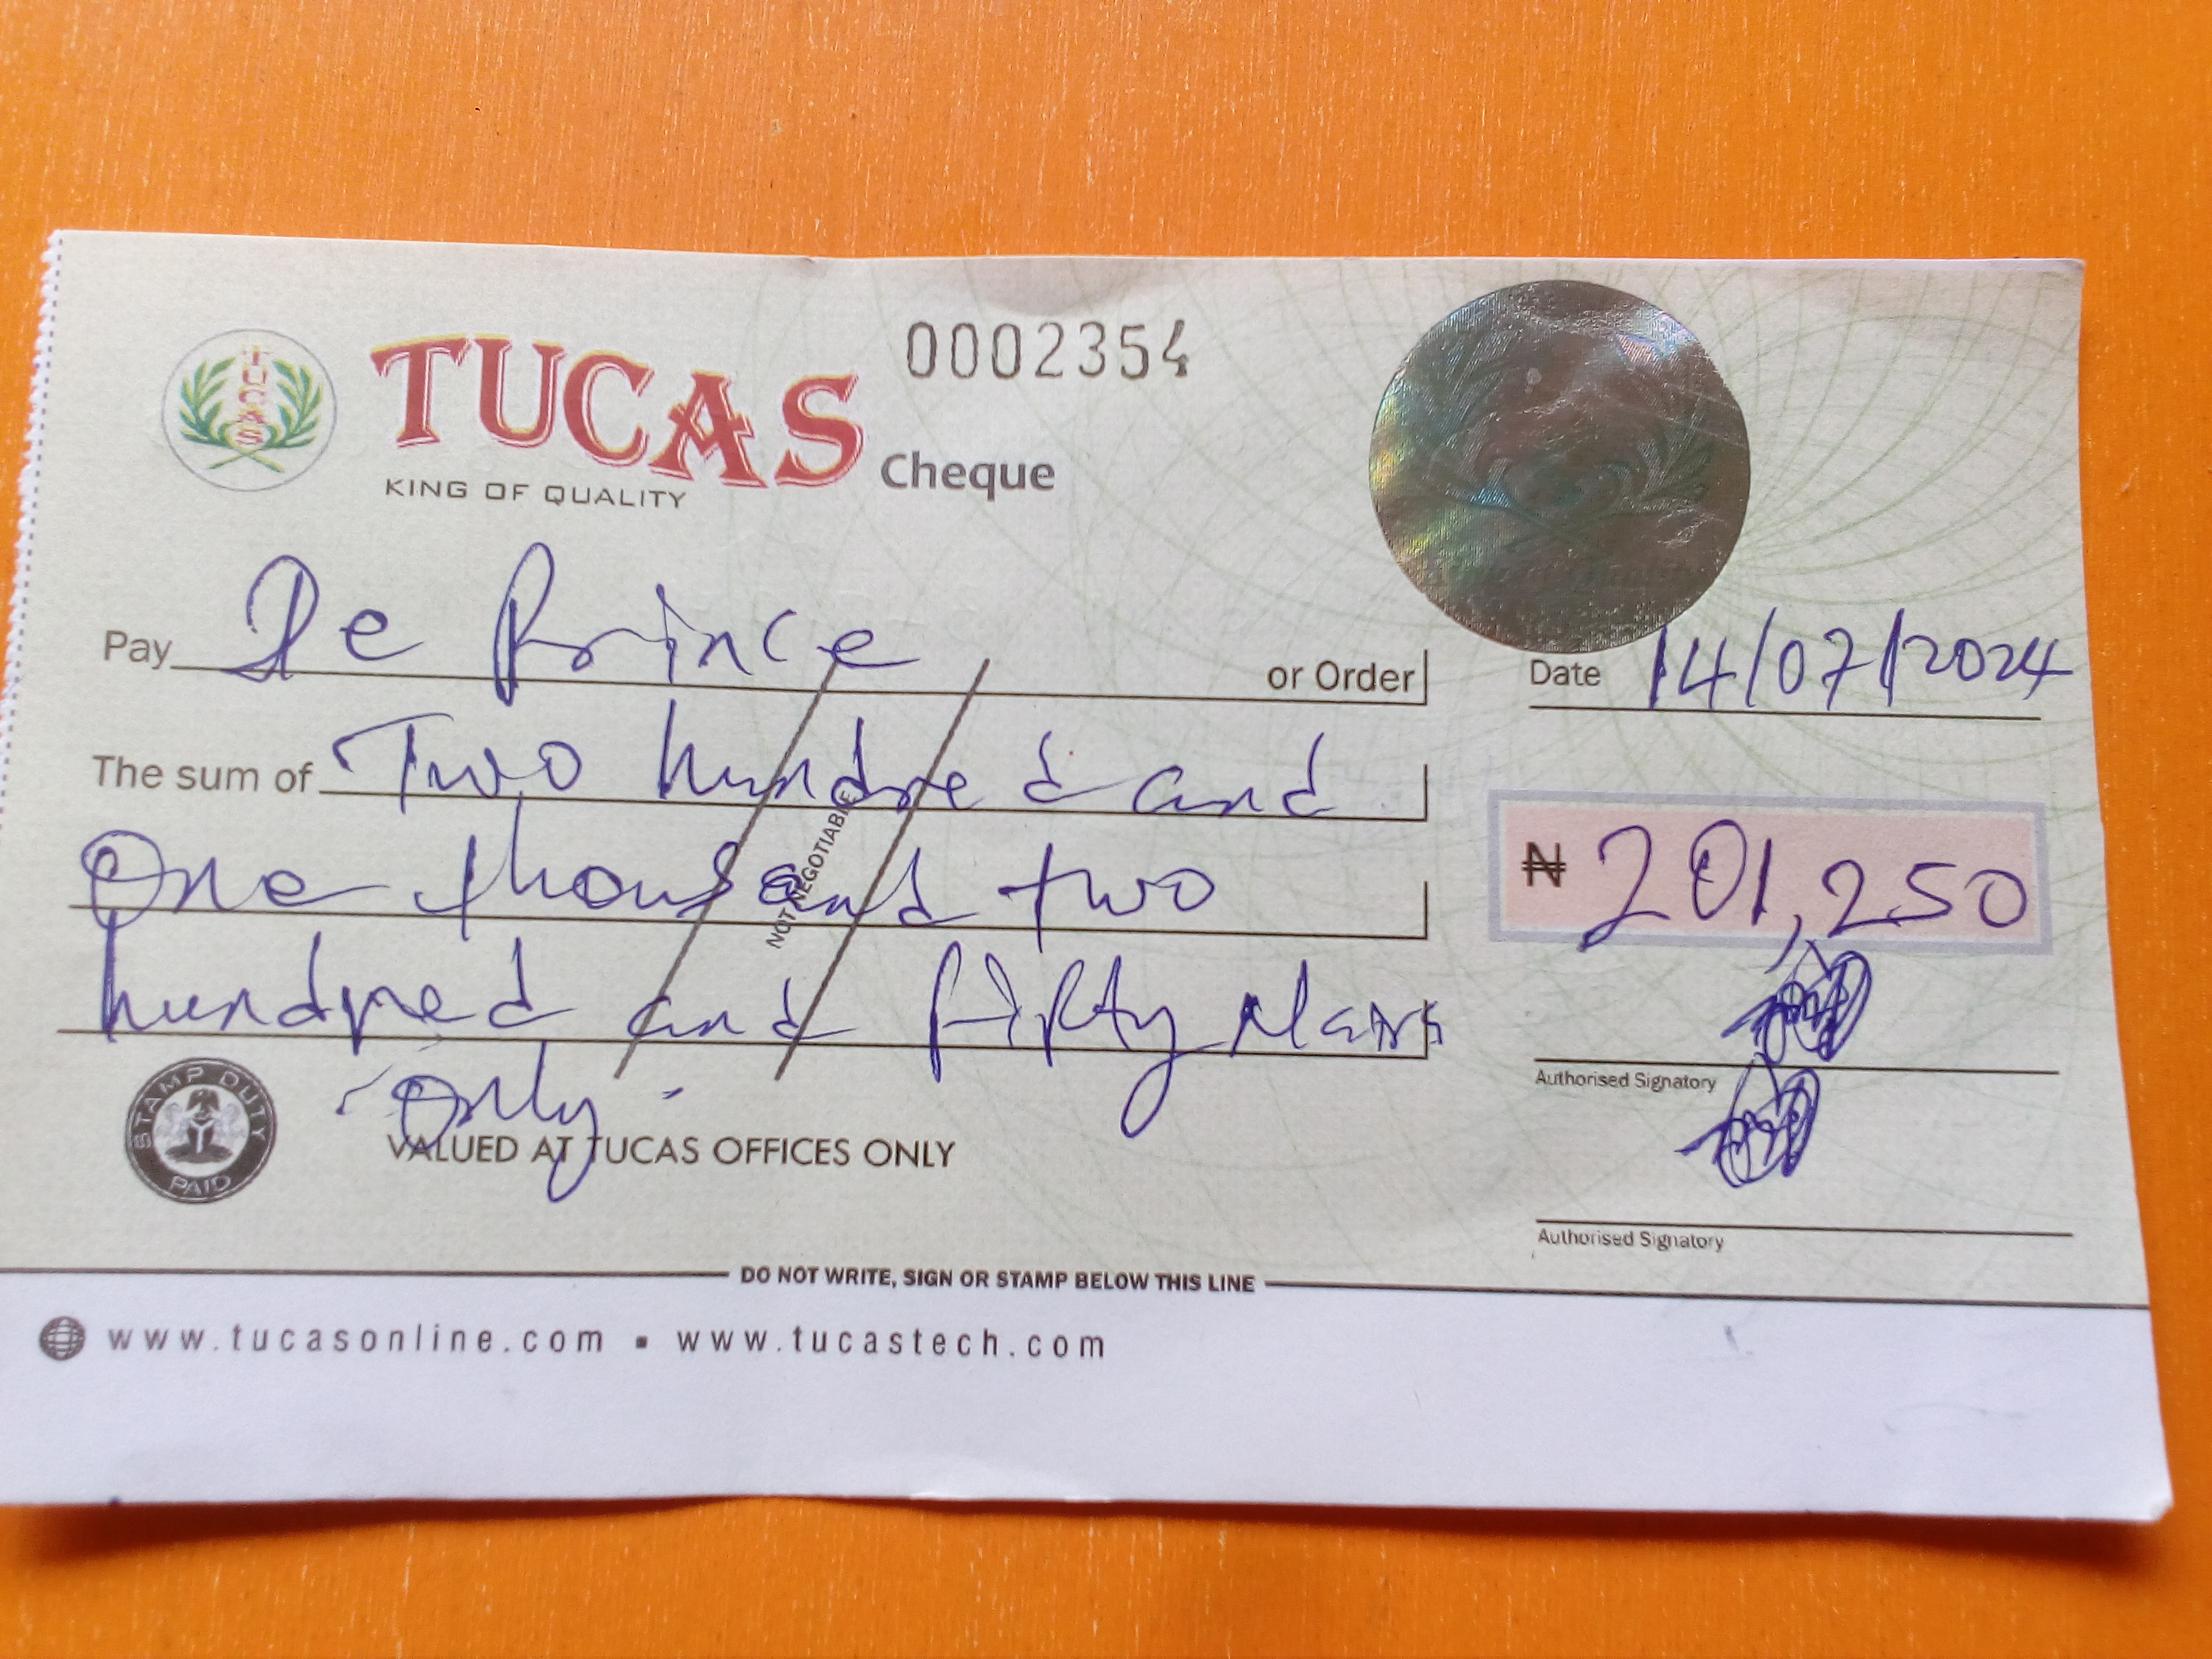 0002354
TUCAS
TUCAS
KING OF QUALITY
Cheque
Pay De Prince or Order
Date 14/07/2024
The sum of Two hundred and
One thousand two
₦ 201,250
NOT NEGOTIABLE
hundred and fifty Nairs
Only -
Authorised Signatory
STAMP DUTY
PAID
VALUED AT TUCAS OFFICES ONLY
Authorised Signatory
DO NOT WRITE, SIGN OR STAMP BELOW THIS LINE
www.tucasonline.com ▪ www.tucastech.com